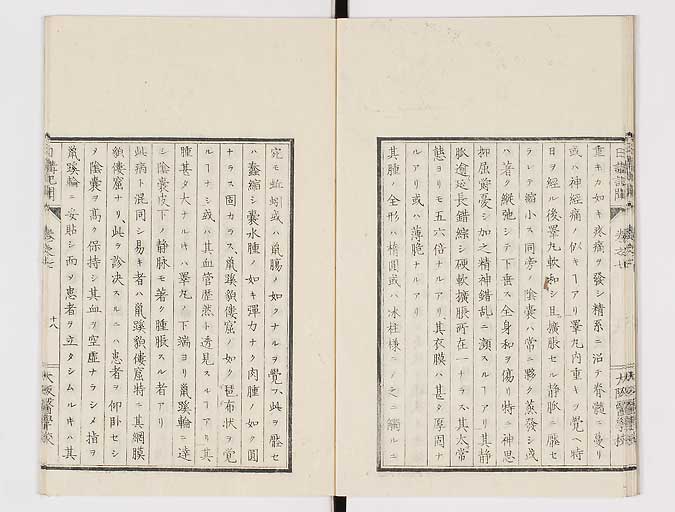 重キカ如キ疼痛ヲ發シ精系ニ沿テ脊髓ニ蔓リ
或ハ神經痛ノ似キヿアリ睪丸内重キヲ覺ヘ時
日ヲ經ル後睪丸軟和シ且擴張セル静脈ニ壓セ
ラレテ縮小ス同旁ノ陰囊ハ常ニ夥ク蒸發シ或
ハ著ク縱弛シテ下垂ス全身和ヲ傷リ特ニ神思
抑屈鬱憂シ加之精神錯乱ニ瀕スルヿアリ其静
脈透延長錯綜シ硬軟擴脹所在一ナラス其太常
態ヨリモ五六倍ナルアリ其衣膜ハ甚タ厚固ナ
ルアリ或ハ薄脆ナルアリ
其腫ノ全形ハ楕圓或ハ冰柱様ニノ之ニ觸ルニ
日講記聞
卷之七
大阪醫學校
宛モ蚯蚓或ハ鼠腸ノ如クナルヲ覺フ此ヲ壓セ
ハ蠢縮シ囊水腫ノ如キ彈力ナク肉腫ノ如ク圓
ナラス固カラス鼠蹊䫉僂窟ノ如ク琶布状ヲ覺
ルヿナシ或ハ其血管歴然ト透見スルヿアリ其
腫甚タ大ナルキハ睪丸ノ下端ヨリ鼠蹊輪ニ達
シ陰囊皮下ノ静脉モ著ク腫脹スル者アリ
此病ト混同シ易キ者ハ鼠蹊䫉僂窟特ニ其網膜
䫉僂窟ナリ此ヲ診决スルニハ患者ヲ仰臥セシ
ヲ陰囊ヲ高ク保持シ其血ヲ空虚ナラシメ指ヲ
鼠蹊輪ニ安貼シ而ヲ患者ヲ立タシムルキハ其
日講記聞
卷之七
十八
大阪醫學校